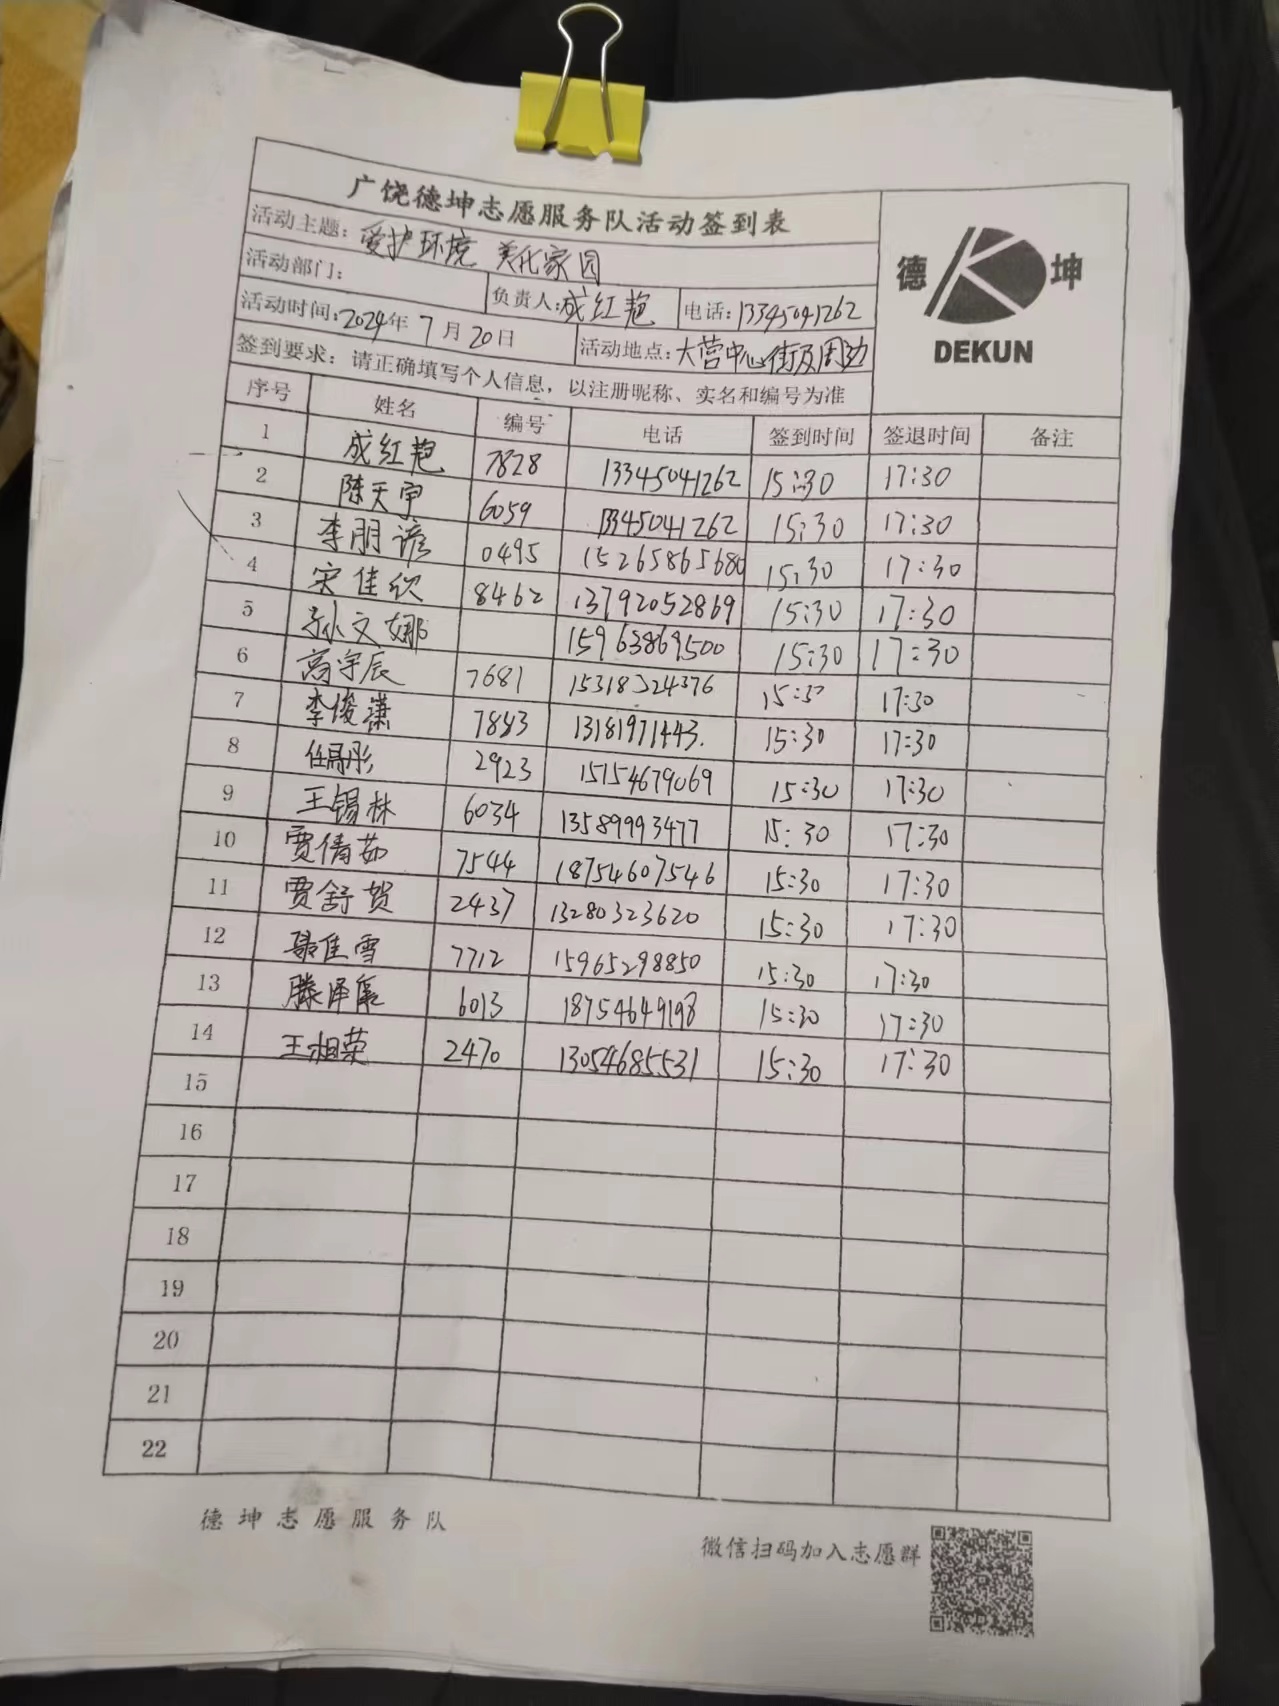 广饶德坤志愿服务队活动签到表
活动主题：爱护环境 美化家园
活动部门：
负责人：成红艳 电话：13345041262
活动时间：2024年7月20日 活动地点：大营中心街及周边
签到要求：请正确填写个人信息，以注册昵称、实名和编号为准
德 坤
DEKUN
序号 姓名 编号 电话 签到时间 签退时间 备注
1 成红艳 7828 13345041262 15:30 17:30
2 陈天宇 6059 13345041262 15:30 17:30
3 李朋谚 0495 15265865680 15:30 17:30
4 宋佳欣 8462 13792052869 15:30 17:30
5 孙文娜 15963869500 15:30 17:30
6 高宇辰 7681 15318324376 15:30 17:30
7 李俊潇 7843 13181971443. 15:30 17:30
8 任 彤 2923 15154679069 15:30 17:30
9 王锡林 6034 13589993477 15:30 17:30
10 贾倩茹 7544 18754607546 15:30 17:30
11 贾舒贺 2437 13280323620 15:30 17:30
12 聂佳雪 7712 15965298850 15:30 17:30
13 滕泽 6013 18754649198 15:30 17:30
14 王湘荣 2470 13054685531 15:30 17:30
15
16
17
18
19
20
21
22
德坤志愿服务队
微信扫码加入志愿群